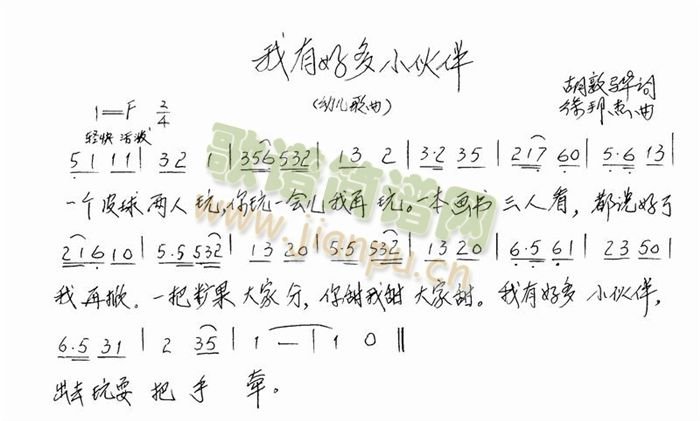 我有好多小伙伴
(幼儿歌曲)
胡敦骅词
1=F 2/4
徐邦杰曲
轻快 活泼
5 1 1 1 | 3 2 1 | 3 5 6 5 3 2 | 1 3 2 | 3·2 3 5 | 2 1 7 6 0 | 5·6 1 3 |
一个皮球两人玩,你玩一会儿我再玩。一本画书三人看,都说好了
2 1 6 1 0 | 5·5 5 3 2 | 1 3 2 0 | 5·5 5 3 2 | 1 3 2 0 | 6·5 6 1 | 2 3 5 0 |
我再掀。一把苹果大家分,你甜我甜大家甜。我有好多小伙伴,
6·5 3 1 | 2 3 5 | 1 — | 1 0 ‖
出去玩耍把手牵。
歌谱简谱网
www.jianpu.cn